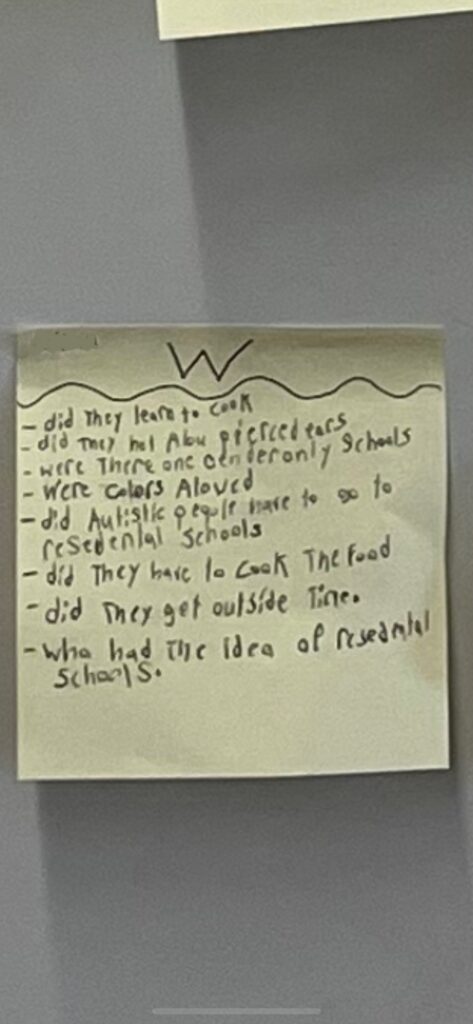 W
- did They learn to cook
- did They not Alow pierced ears
- were There one genderonly Schools
- Were Colors Aloved
- did Autistic people have to go to
resedental Schools
- did They have to Cook The Food
- did They get outside Time.
- Who had The idea of resedental
Schools.